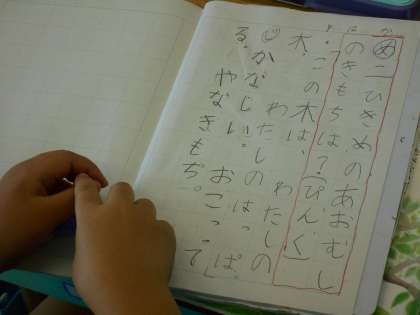 め二ひきめのあおむし
のきもちは？(ぴんく)
・この木は、わたしの
木。わたしのはっぱ。
かなしい。おこって
る。やなきもち。